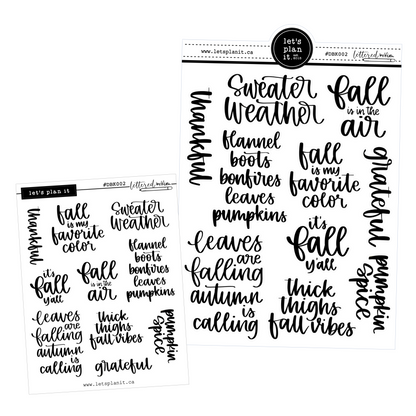 let's
plan
it.
www.letsplanit.ca
#DBK002
lettered
Sweater
weather
fall
is in the
air
thankful
flannel
boots
bonfires
leaves
pumpkins
fall
is my
favorite
color
grateful
it's
fall
y'all
leaves
are
falling
autumn
is
calling
pumpkin
spice
thick
thighs
fall vibes
let's plan it
#DBK002
lettered
thankful
fall
is my
favorite
color
Sweater
weather
flannel
boots
bonfires
leaves
pumpkins
it's
fall
y'all
fall
is in the
air
leaves
are
falling
autumn
is
calling
thick
thighs
fall vibes
pumpkin
spice
grateful
www.letsplanit.ca